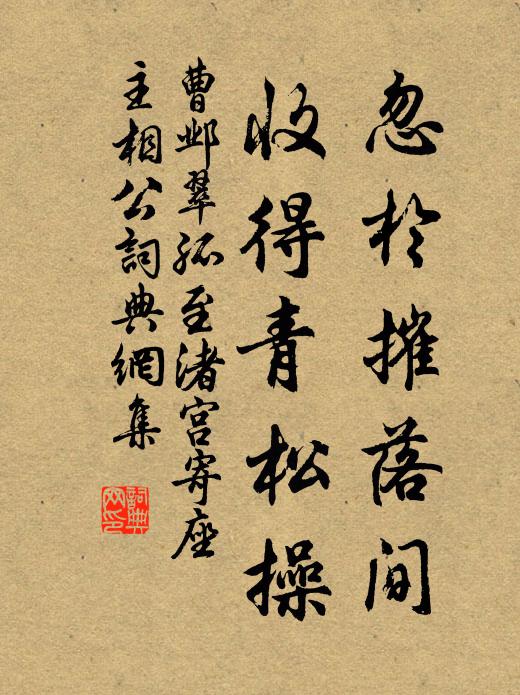 忽於摧落間
收得青松操
曹邺翠孤至渚宫寄座
主相公詞典網集
詞典网印